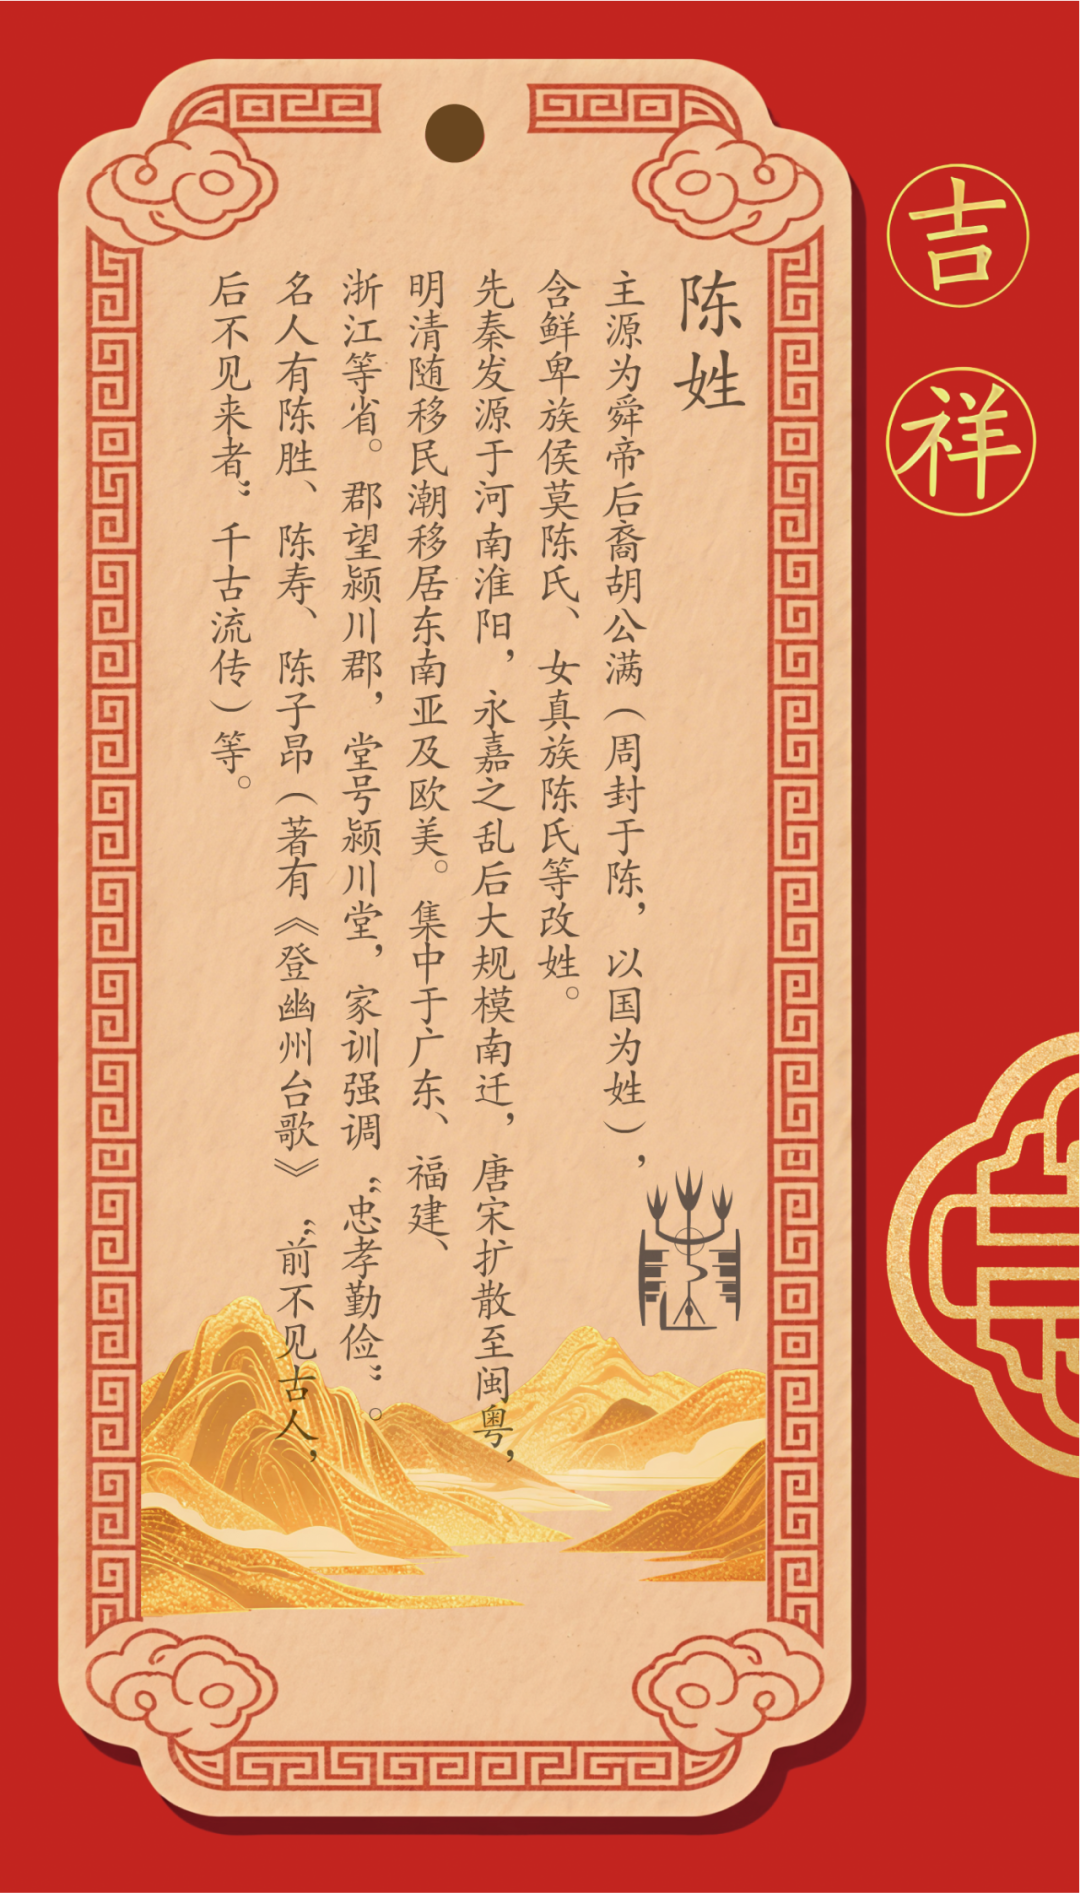 陈姓
主源为舜帝后裔胡公满（周封于陈，以国为姓），
含鲜卑族侯莫陈氏、女真族陈氏等改姓。
先秦发源于河南淮阳，永嘉之乱后大规模南迁，唐宋扩散至闽粤，
明清随移民潮移居东南亚及欧美。集中于广东、福建、
浙江等省。郡望颍川郡，堂号颍川堂，家训强调“忠孝勤俭”。
名人有陈胜、陈寿、陈子昂（著有《登幽州台歌》“前不见古人，
后不见来者”千古流传）等。
吉祥